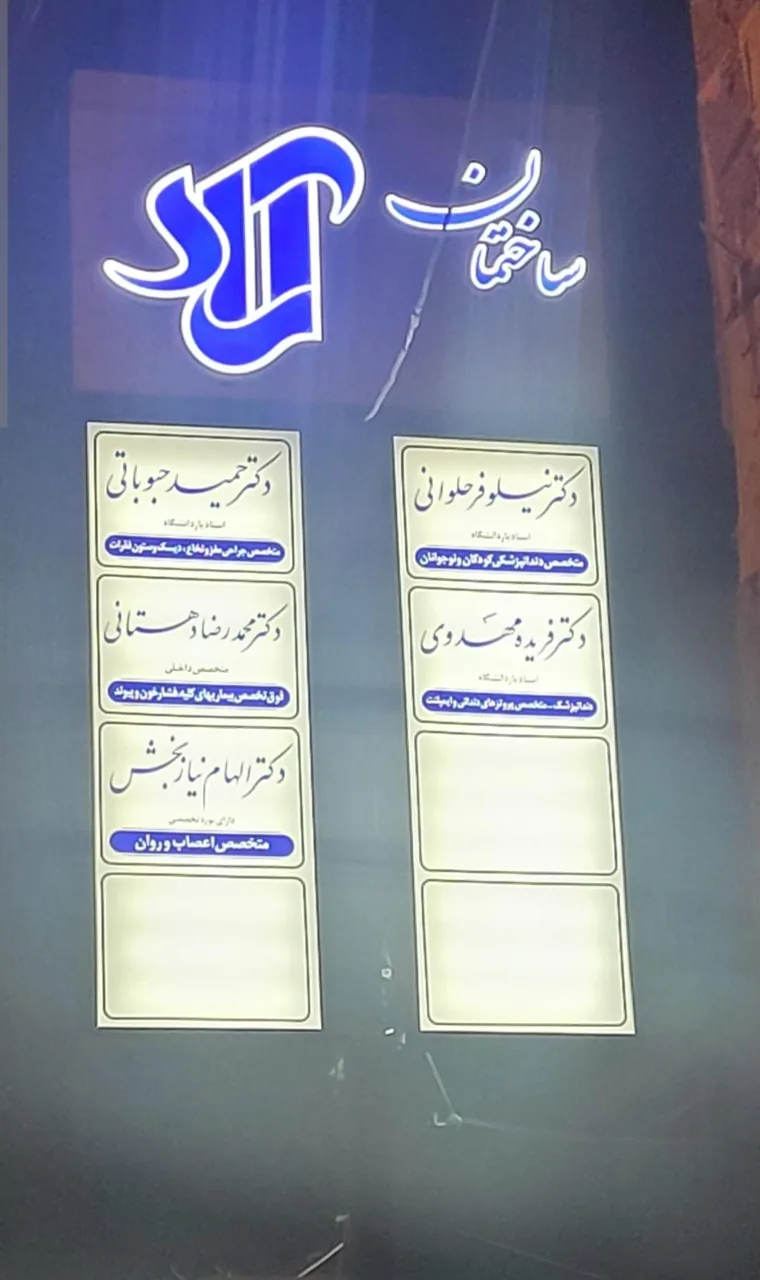 ساختمان
دکتر نیلوفر حلوانی
استادیار دانشگاه
متخصص دندانپزشکی کودکان و نوجوانان
دکتر فریده مهدوی
استادیار دانشگاه
دندانپزشک - متخصص پروتزهای دندانی و ایمپلنت
دکتر حمید حبوباتی
استادیار دانشگاه
متخصص جراحی مغز و نخاع، دیسک و ستون فقرات
دکتر محمدرضا دهستانی
متخصص داخلی
فوق تخصص بیماریهای کلیه، فشارخون و پیوند
دکتر الهام نیازبخش
دارای بورد تخصصی
متخصص اعصاب و روان